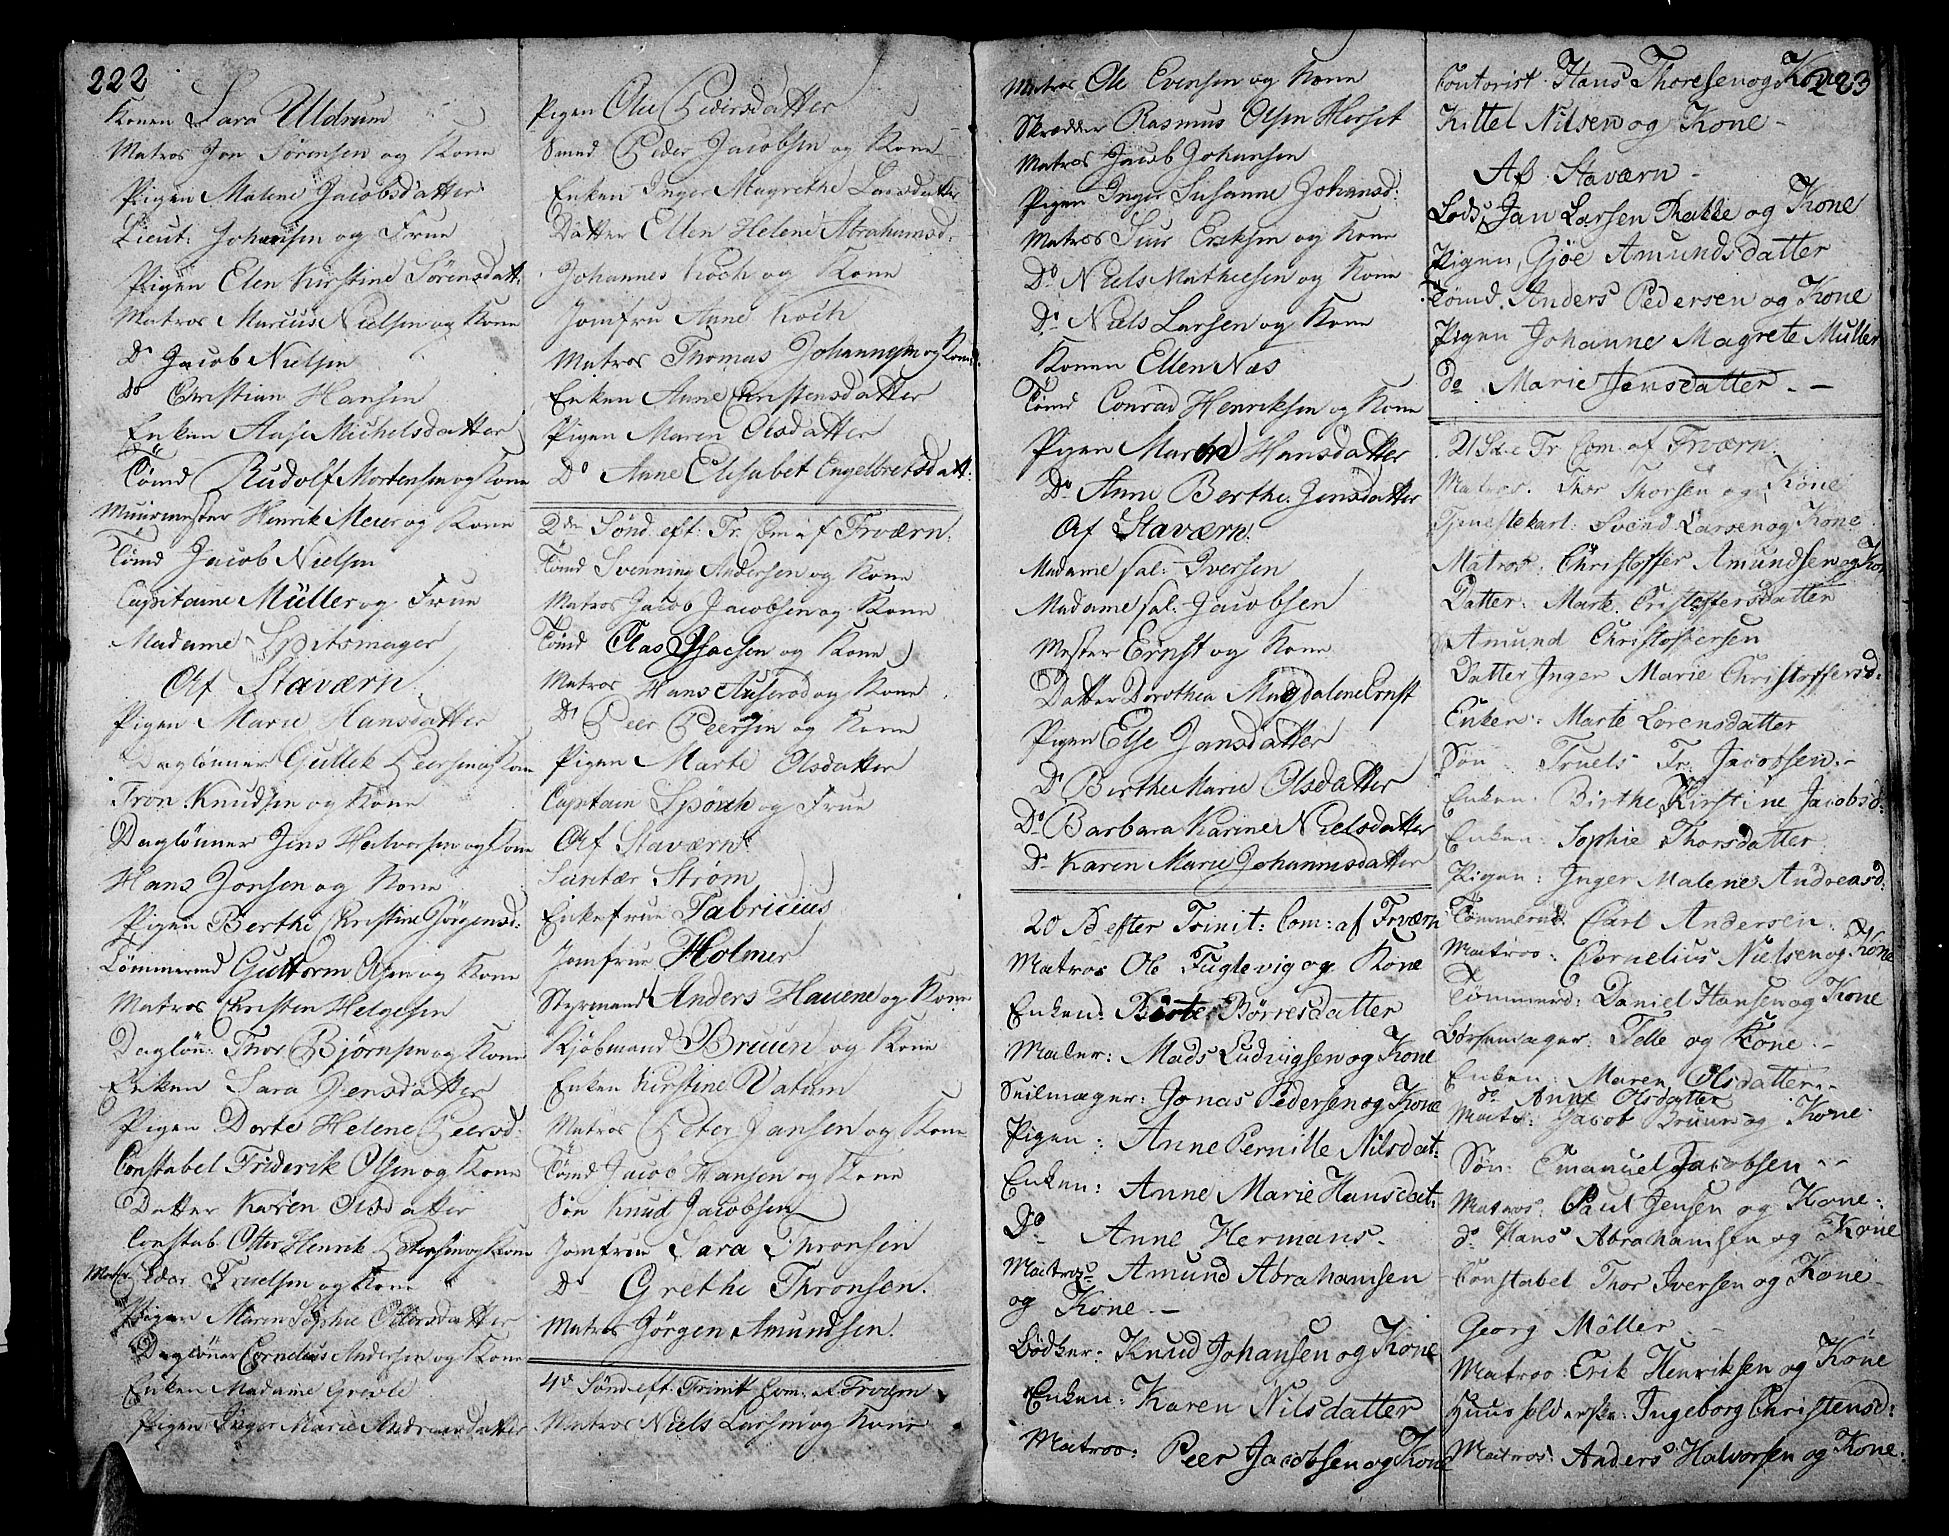 222
Konen Sara Uldrum
Matros Jon Sörensen og Kone
Pigen Malene Jacobsdatter
Lieut: Johansen og Frue
Pigen Elen Kirstine Sörensdatt:
Matros Marcus Nielsen og Kone
Do Jacob Nielsen
Do Christian Hansen
Enken Aase Michelsdatter
Tömd Rudolf Mortensen og Kone
Muurmester Henrik Meier og Kone
Tömd Jacob Nielsen
Capitaine Müller og Frue
Madame Spitsmager
Af Staværn
Pigen Marie Hansdatter
Daglönner Gullik Peersen og Kone
Tron Knudsen og Kone
Daglönner Jens Halvorsen og Kone
Hans Jonsen og Kone
Pigen Berthe Christine Jörgensd:
Tömmermd Guttorm Olsen og Kone
Matros Christen Helgesen
Daglön: Thor Björnsen og Kone
Enken Sara Jensdatter
Pigen Dorte Helene Peersd:
Constabel Friderik Olsen og Kone
Datter Karen Olsdatter
Constab. Otter Henrik Petersen og Kone
Matr. Peder Truelsen og Kone
Pigen Maren Sophie Ottersdatter
Daglönner Cornelius Andersen og Kone
Enken Madame Grovle
Pigen Inger Marie Andreasdatter
Pigen Olie Pedersdatter
Smed Peder Jacobsen og Kone
Enken Inger Magrethe Larsdatter
Datter Ellen Helene Abrahamsd:
Johannes Koch og Kone
Jomfru Anne Koch
Matros Thomas Johannesen og Kone
Enken Anne Christensdatter
Pigen Maren Olsdatter
Do Anne Elisabet Engelbretsdatt:
2den Sönd. eft: Tr. Com: af Frværn.
Tömd Svenning Andersen og Kone
Matros Jacob Jacobsen og Kone
Tömd Clas Isacsen og Kone
Matros Hans Auseröd og Kone
Do Peer Peersen og Kone
Pigen Marte Olsdatter
Capitain Spörck og Frue
Af Staværn.
Strøm
Enkefrue Fabricius
Jomfrue Holmer
Styrmand Anders Hauene og Kone
Kjöbmand Bruun og Kone
Enken Kirstine Vatum
Matros Peter Jansen og Kone
Tömd Jacob Hansen og Kone
Sön Knud Jacobsen
Jomfrue Sara Thronsen
Do Grethe Thronsen.
Matros Jörgen Amundsen.
4de Sönd. eft: Trinit. Com: af Frværn
Matros Niels Larsen og Kone
Matros Ole Evensen og Kone
Skrædder Rasmus Olsen Herset
Matros Jacob Johansen
Pigen Inger Susanne Johansd:
Matros Siur Eriksen og Kone
Do Niels Mathiesen og Kone
Do Niels Larsen og Kone
Konen Ellen Næs
Tömd Conrad Henriksen og Kone
Pigen Maren Hansdatter
Do Anne Berthe Jensdatter
Af Staværn.
Madame sal: Iversen
Madame sal. Jacobsen
Mester Ernst og Kone
Datter Dorothea Magdalene Ernst
Pigen Else Jansdatter
Do Berthe Marie Olsdatter
Do Barbara Karine Nielsdatter
Do Karen Marie Johannesdatter
20 S efter Trinit: Com: af Frværn
Matros Ole Fuglevig og Kone
Enken: Birte Börresdatter
Maler: Mads Ludvigsen og Kone
Seilmager: Jonas Pedersen og Kone
Pigen: Anne Pernille Nilsdat:
Enken: Anne Marie Hansdat:
Do Anne Hermans.
Matros Amund Abrahamsen
og Kone.
Bödker: Knud Johansen og Kone
Enken: Karen Nilsdatter
Matros: Peer Jacobsen og Kone
223
Contorist Hans Thoresen og Kone
Kittel Nilsen og Kone
Af Staværn
Lods, Jan Larsen Rakke og Kone
Pigen, Gjöe Amundsdatter
Tömd. Anders Pedersen og Kone
Pigen Johanne Magrete Muller
Do Marie Jensdatter
21 S. e Tr Com: af Frværn.
Matros. Thor Thorsen og Kone
Tjenestekarl: Svend Larsen og Kone
Matros. Christoffer Amundsen og Kone
Datter: Marte Cristoffersdatter
Amund Christoffersen
Datter Inger Marie Christoffersd:
Enken: Marte Lorensdatter
Sön: Truels Fr. Jacobsen.
Enken: Birthe Kirstine Jacobsd:
Enken: Sophie Thorsdatter
Pigen: Inger Malene Andreasd:
Tömmermd. Carl Andersen
Matros: Cornelius Nielsen og Kone
Tömmermd: Daniel Hansen og Kone
Börsemager: Telle og Kone.
Enken: Maren Olsdatter
do Anne Olsdatter
Matr: Jacob Bruun og Kone
Sön: Emanuel Jacobsen
Matros: Paul Jensen og Kone:
do Hans Abrahamsen og Kone
Constabel Thor Iversen og Kone
Georg Möller
Matros: Erik Henriksen og Kone
Huusholderske: Ingeborg Christensd:
Matros: Anders Halvorsen og Kone.